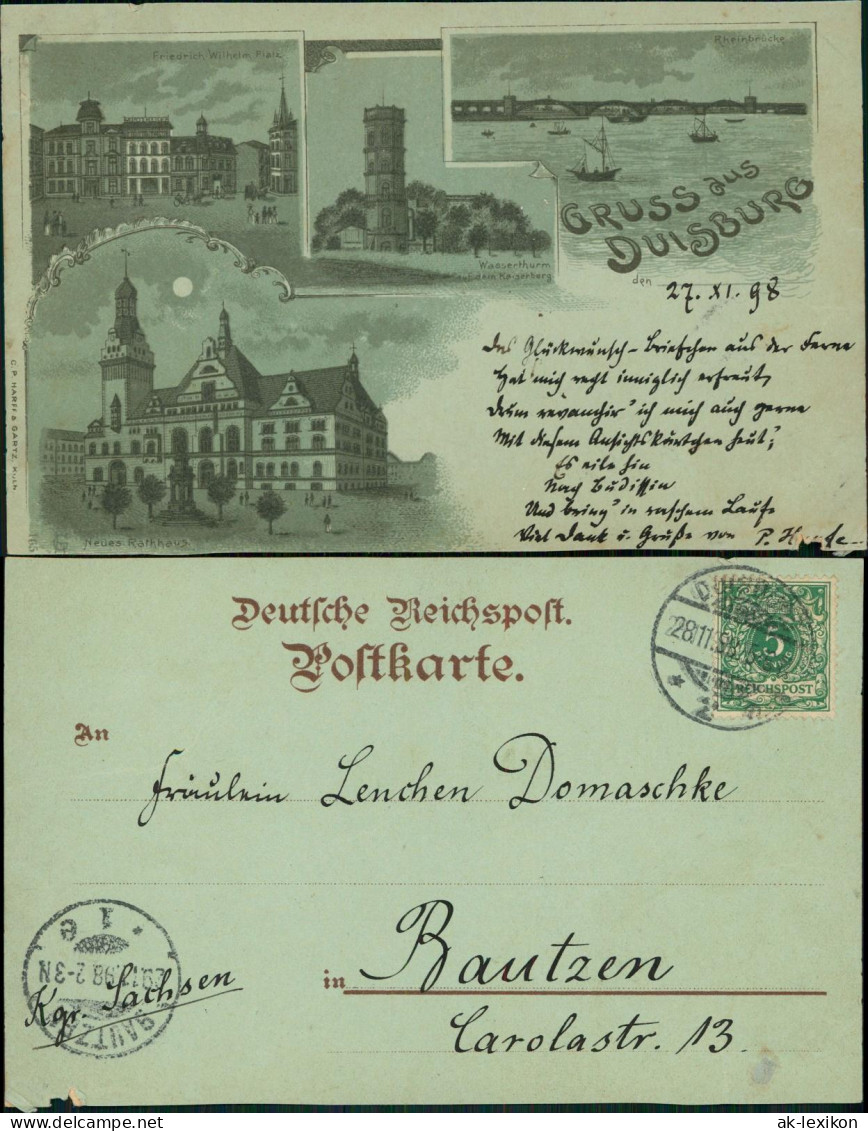 Friedrich Wilhelm Platz
Rheinbrücke
Wasserthurm
a. dem Kaiserberg
GRUSS aus
DUISBURG
den 27. XI. 98
Das Glückwunsch-Briefchen aus der Ferne
Hat mich recht inniglich erfreut,
Drum revanchir' ich mich auch gerne
Mit diesem Ansichtskärtchen heut';
Es eile hin
Nach Budissin
Und bring' in raschem Laufe
Viel Dank u. Grüße von P.
Neues Rathhaus
C. P. HARFF & GARTZ, Köln
Deutsche Reichspost.
Postkarte.
DUISBURG
28.11.98
2
5
REICHSPOST
An
Fräulein Lenchen Domaschke
in Bautzen
Kgr. Sachsen
Carolastr. 13.
BAUTZEN
29.11.98 2-3N
* 1 e
delcampe.net
ak-lexikon